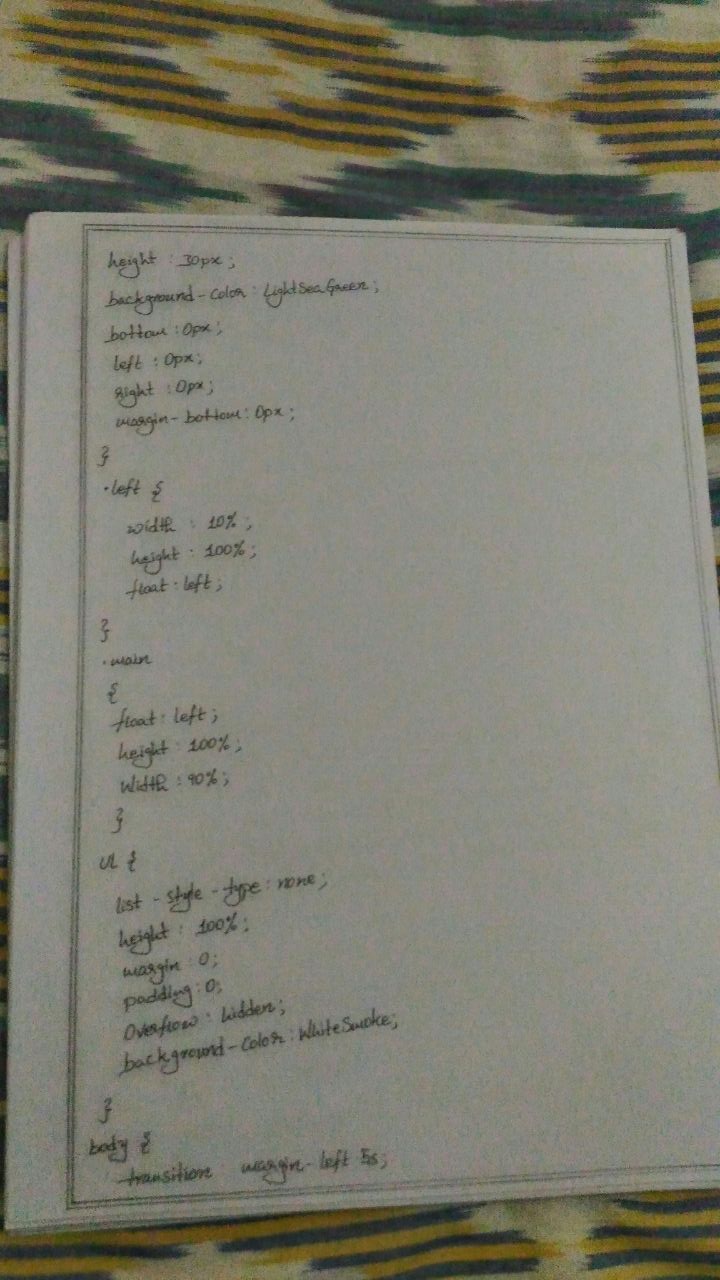 height : 30px ;
background-color : LightSeaGreen ;
bottom : 0px ;
left : 0px ;
right : 0px ;
margin-bottom : 0px ;
}
.left {
width : 10% ;
height : 100% ;
float : left ;
}
.main
{
float : left ;
height : 100% ;
Width : 90% ;
}
ul {
list - style - type : none ;
height : 100% ;
margin : 0 ;
padding : 0 ;
Overflow : hidden ;
background-color : WhiteSmoke ;
}
body {
transition margin-left 5s ;